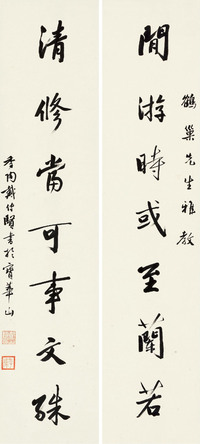 鶴巢先生雅教
閒游時或至蘭若
清修當可事文殊
季陶戴傳賢書於寶華山